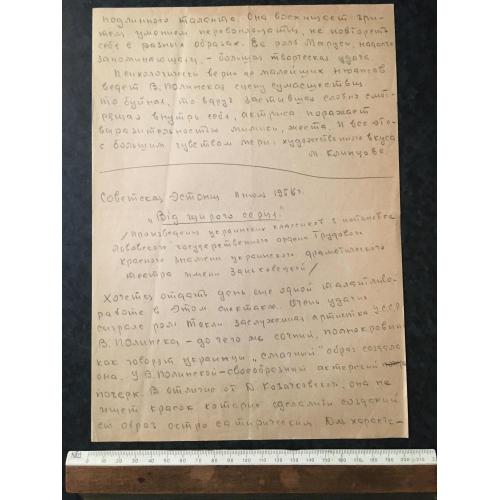 подлинного таланта. Она восхищает зри-
теля умением перевоплощаться, не повторять
себя в разных образах. Ее роль Маруси, надолго
запоминающаяся, - большая творческая удача.
Психологически верно до малейших нюансов
ведет В. Полинская сцену сумасшествия.
То буйная, то вдруг застывшая словно смот-
рящая внутрь себя, актриса поражает
выразительностью мимики, жеста. И все это
с большим чувством меры, художественного вкуса
М. Клинцова.
Советская Эстония 11 июля 1956 г.
"Від щирого серця."
/Произведения украинских классиков в постановке
Львовского государственного ордена Трудового
Красного знамени украинского драматического
театра имени Заньковецкой/
Хочется отдать дань еще одной талантливой
работе в этом спектакле. Очень удачно
сыграла роль Теклі заслуженная артистка УССР
В. Полинская - до чего же сочный, полнокровный
как говорят украинцы "смачний" образ создала
она. У В. Полинской - своеобразный актерский
почерк. В отличие от Д. Козачковской, она не
ищет красок которые сделали бы созданный
ею образ остро сатирическим. Для характе-